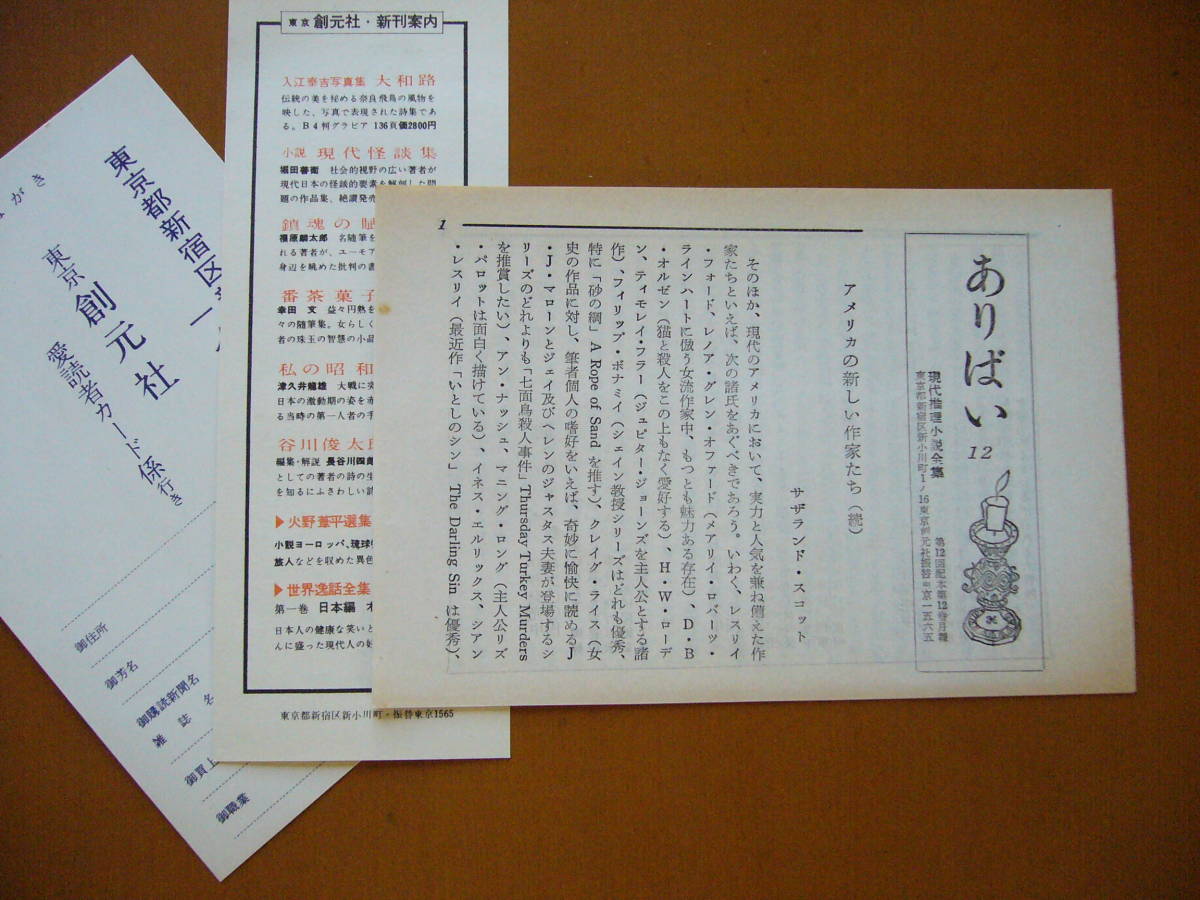 はがき
東京都新宿区
東京 創元社
愛読者カード係行き
御住所
御芳名
御購読新聞名
雑誌名
御買上
御職業
東京 創元社・新刊案内
入江泰吉写真集 大和路
伝統の美を秘める奈良飛鳥の風物を
映した、写真で表現された詩集であ
る。B4判グラビア 136頁価2800円
小説 現代怪談集
堀田善衛 社会的視野の広い著者が
現代日本の怪談的要素を解剖した問
題の作品集、絶讃発売
鎮魂の賦
福原麟太郎 名随筆を
れる著者が、ユーモア
身辺を眺めた批判の書
番茶菓子
幸田文 益々円熟を
々の随筆集。女らしく
者の珠玉の智慧の小品
私の昭和
津久井龍雄 大戦に突
日本の激動期の姿を赤
る当時の第一人者の手
谷川俊太郎
編集・解説 長谷川四郎
としての著者の詩の生
を知るにふさわしい詩
▶火野葦平選集
小説ヨーロッパ、琉球
旅人などを収めた異色
▶世界逸話全集
第一巻 日本編
日本人の健康な笑いと
んに盛った現代人の
東京都新宿区新小川町・振替東京1565
ありばい
12
現代推理小説全集 第12回配本第12巻月報
東京都新宿区新小川町1ノ16東京創元社振替東京一五六五
アメリカの新しい作家たち（続）
サザランド・スコット
そのほか、現代のアメリカにおいて、実力と人気を兼ね備えた作
家たちといえば、次の諸氏をあぐべきであろう。いわく、レスリイ
・フォード、レノア・グレン・オファード（メアリイ・ロバーツ・
ラインハートに倣う女流作家中、もつとも魅力ある存在）、D・B
・オルゼン（猫と殺人をこの上もなく愛好する）、H・W・ローデ
ン、ティモレイ・フラー（ジュピター・ジョーンズを主人公とする諸
作）、フィリップ・ボナミイ（シェイン教授シリーズはどれも優秀、
特に「砂の綱」A Rope of Sand を推す）、クレイグ・ライス（女
史の作品に対し、筆者個人の嗜好をいえば、奇妙に愉快に読めるJ
・J・マローンとジェイ及びヘレンのジャスタス夫妻が登場するシ
リーズのどれよりも「七面鳥殺人事件」Thursday Turkey Murders
を推賞したい）、アン・ナッシュ、マニング・ロング（主人公リズ
・パロットは面白く描けている）、イネス・エルリックス、シアン
・レスリイ（最近作「いとしのシン」The Darling Sin は優秀）、
1